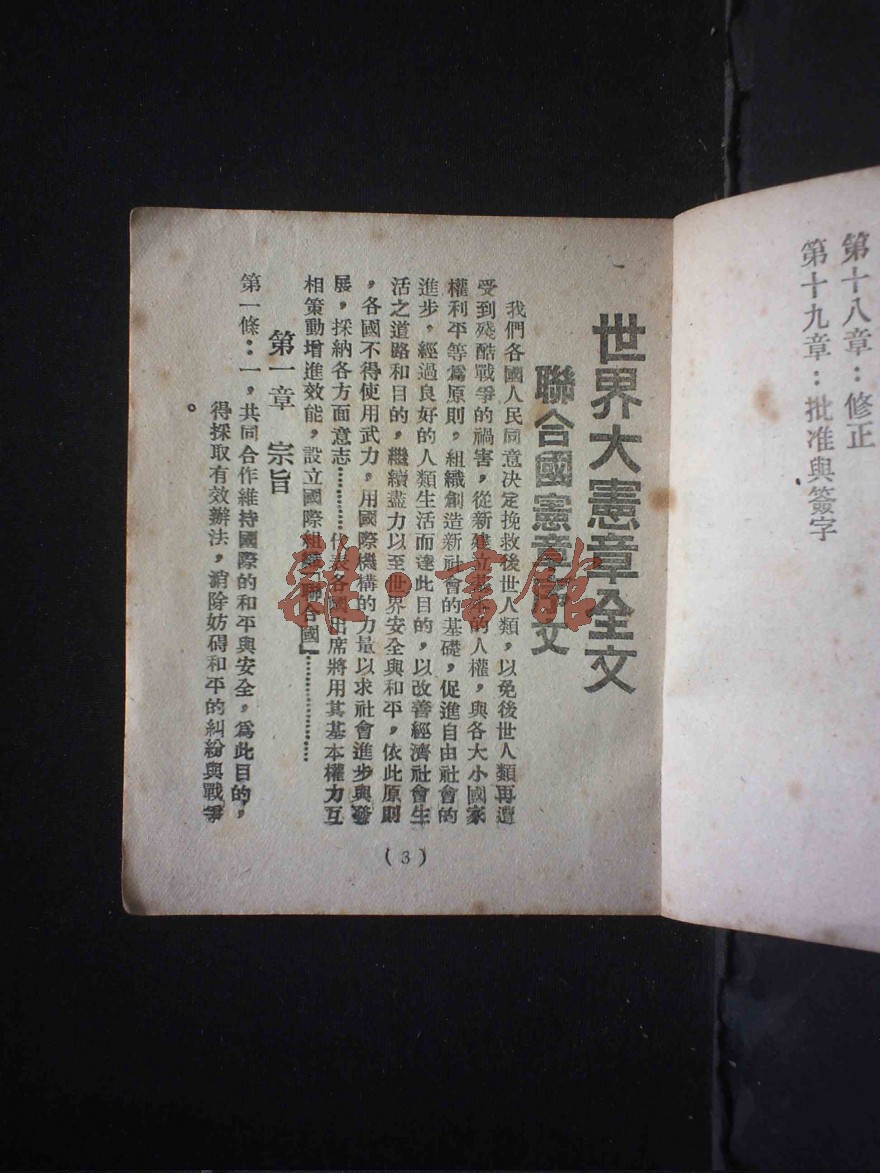 第十八章：修正
第十九章：批准與簽字
世界大憲章全文
聯合國憲章 文
我們各國人民同意决定挽救後世人類，以免後世人類再遭
受到殘酷戰爭的禍害，從新建立基本的人權，與各大小國家
權利平等爲原則，組織創造新社會的基礎，促進自由社會的
進步，經過良好的人類生活而達此目的，以改善經濟社會生
活之道路和目的，繼續盡力以至世界安全與和平，依此原則
，各國不得使用武力，用國際機構的力量以求社會進步與發
展，採納各方面意志…………代表各國出席將用其基本權力互
相策動增進效能，設立國際組織「聯合國」…………………
第一章　宗旨
第一條：一，共同合作維持國際的和平與安全，爲此目的，
得採取有效辦法，消除妨碍和平的糾紛與戰爭
。
(3)
雜·書館